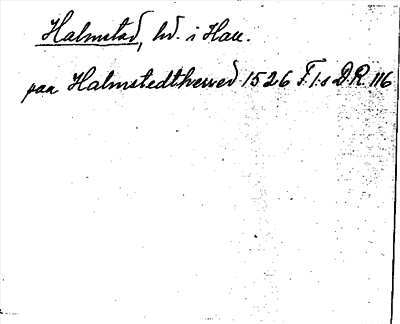 Halmstad, hd. i Hall.
paa Halmstedtherred 1526 F.1:s D.R 116